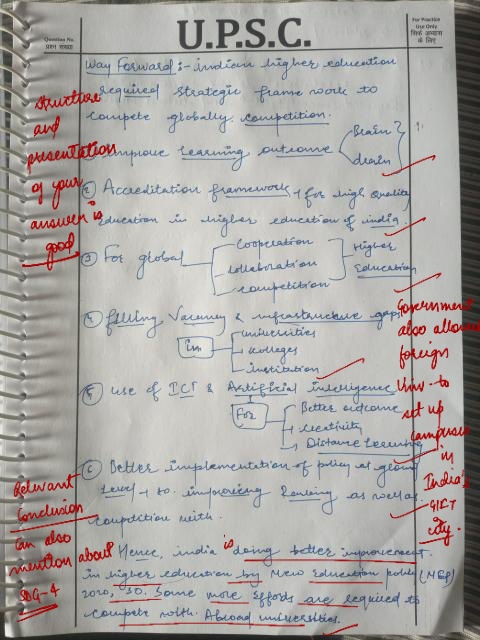 Question No.
प्रश्न संख्या
U.P.S.C.
For Practice
Use Only
सिर्फ अभ्यास
के लिए
Way Forward :- indian higher education
required strategic frame work to
compete globally competition.
improve learning outcome
Brain
drain
② Accreditation framework for high Quality
education in higher education of india.
③ For global
Cooperation
collaboration
competition
Higher
Education
4 filling Vacancy & infrastructure gaps
Im
universities
colleges
institution
5 use of ICT & Artificial intelligence
For
Better outcome
creativity
Distance Learning
6 Better implementation of policy at ground
Level + so. improving Ranking as well as
competition with.
Hence, india is doing better improvement
in higher education by New Education policy (NEP)
2020, so. Some more Efforts are required to
compete with Abroad universities.
structure
and
presentation
of your
answer is
good
Government
also allowed
foreign
Univ. to
set up
campuses
in
India's
GIFT
city.
Relevant
Conclusion
Can also
mention about
SDG-4